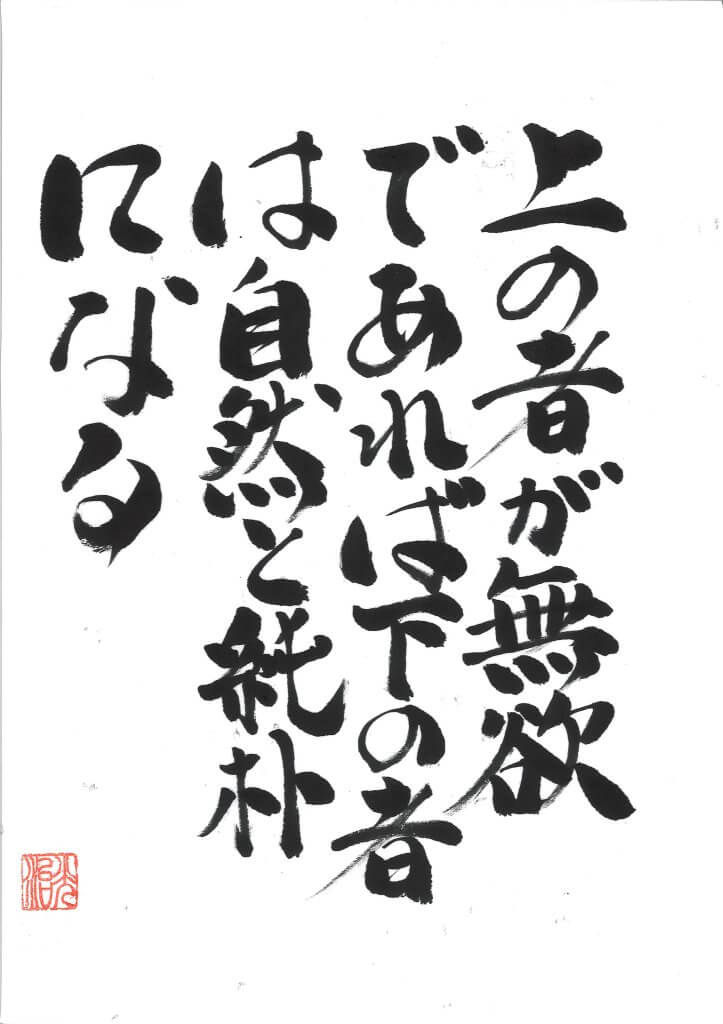 上の者が無欲
であれば下の者
は自然と純朴
になる